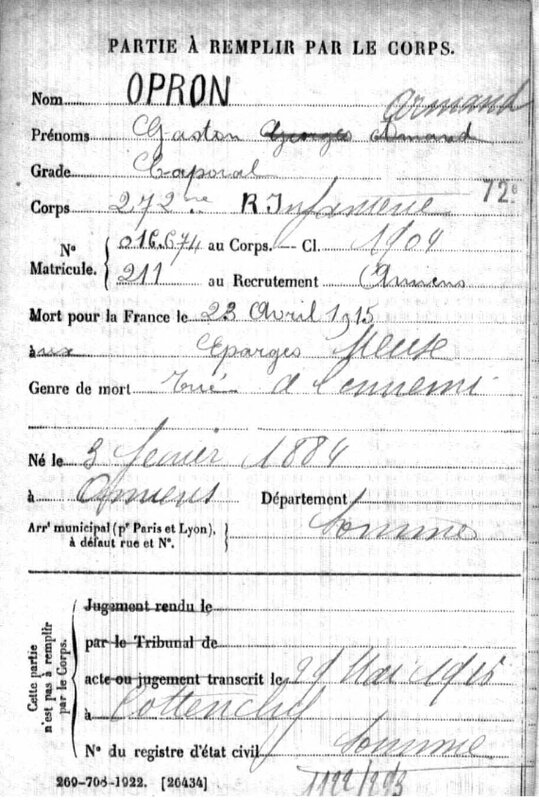 PARTIE À REMPLIR PAR LE CORPS.
Nom OPRON
Armand
Prénoms Gaston Georges Armand
Grade Caporal
72e
Corps 272me R Infanterie
N° Matricule. 016.674 au Corps. — Cl. 1904
211 au Recrutement Amiens
Mort pour la France le 23 Avril 1915
à aux Eparges Meuse
Genre de mort Tué à l'ennemi
Né le 3 février 1884
à Amiens Département
Arrt municipal (pr Paris et Lyon), à défaut rue et N°. Somme
Cette partie n'est pas à remplir par le Corps.
Jugement rendu le
par le Tribunal de
acte ou jugement transcrit le 29 Mai 1915
à Cottenchy
N° du registre d'état civil Somme
269-708-1922. [26434]